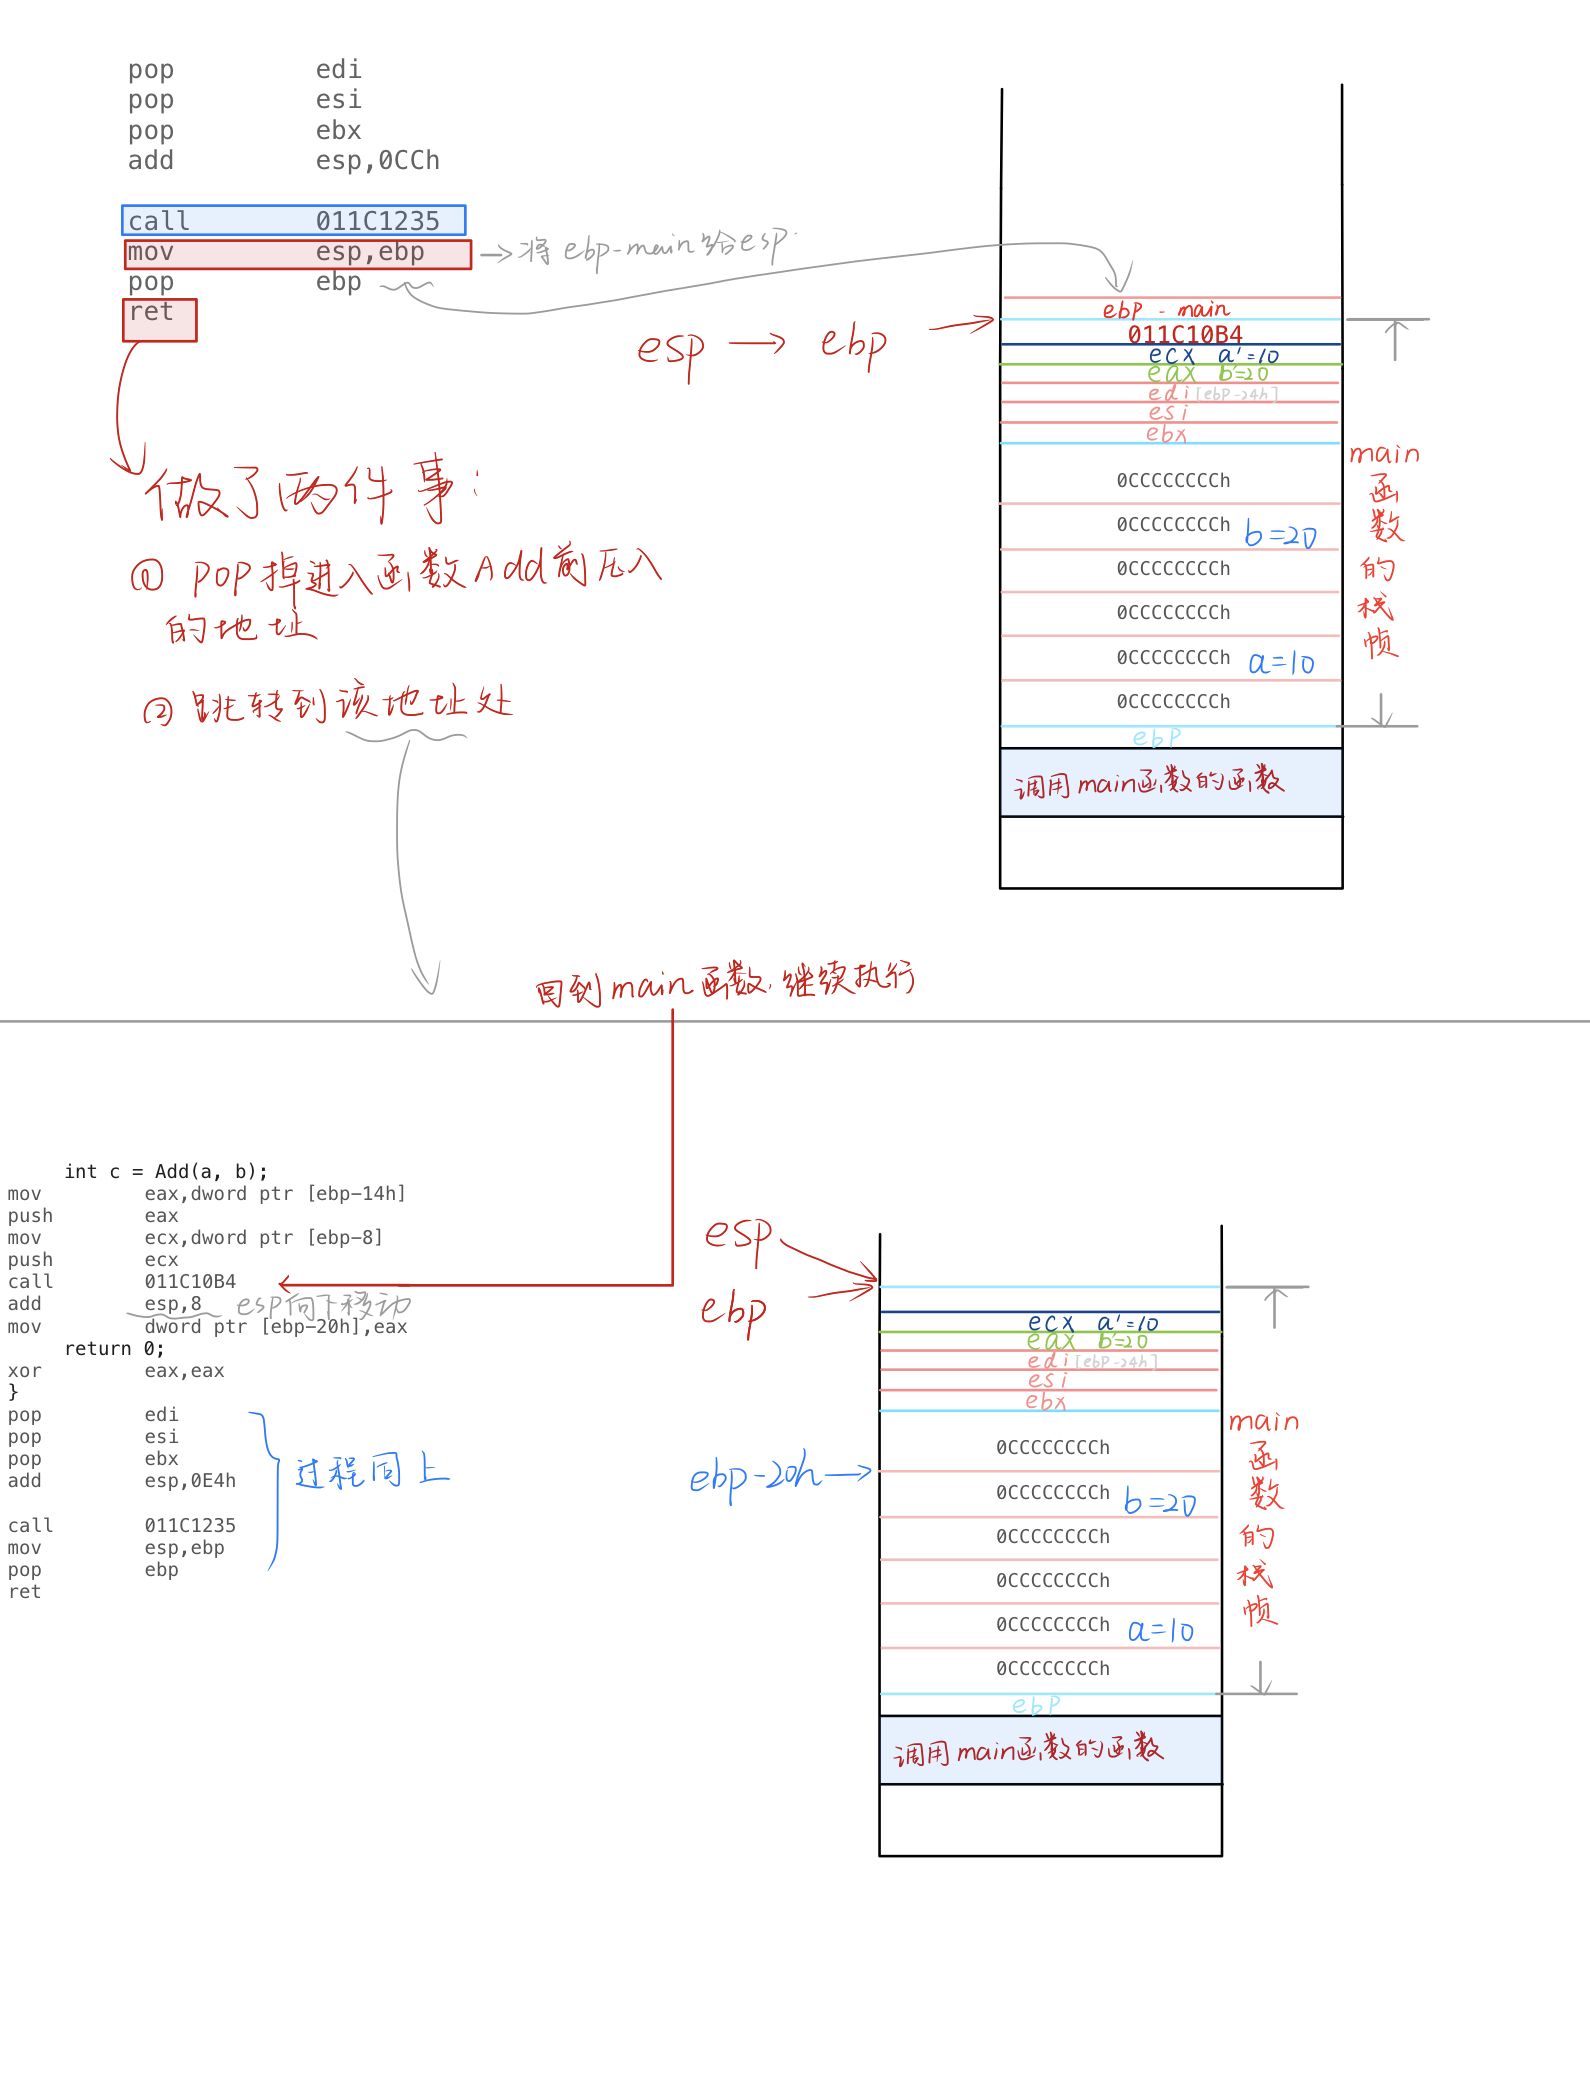 pop edi
pop esi
pop ebx
add esp,0CCh
call 011C1235
mov esp,ebp
→将 ebp-main给esp.
pop ebp
ret
esp → ebp
做了两件事:
① pop掉进入函数Add前压入
的地址
② 跳转到该地址处
ebp - main
011C10B4
ecx a'=10
eax b'=20
edi [ebp-24h]
esi
ebx
0CCCCCCCCh
0CCCCCCCCh b=20
0CCCCCCCCh
0CCCCCCCCh
0CCCCCCCCh a=10
0CCCCCCCCh
ebp
调用main函数的函数
main
函
数
的
栈
帧
回到main函数,继续执行
int c = Add(a, b);
mov eax,dword ptr [ebp-14h]
push eax
mov ecx,dword ptr [ebp-8]
push ecx
call 011C10B4
add esp,8 esp向下移动
mov dword ptr [ebp-20h],eax
return 0;
xor eax,eax
}
pop edi
pop esi
pop ebx
add esp,0E4h
过程同上
call 011C1235
mov esp,ebp
pop ebp
ret
esp
ebp
ebp-20h→
ecx a'=10
eax b'=20
edi [ebp-24h]
esi
ebx
0CCCCCCCCh
0CCCCCCCCh b=20
0CCCCCCCCh
0CCCCCCCCh
0CCCCCCCCh a=10
0CCCCCCCCh
ebp
调用main函数的函数
main
函
数
的
栈
帧